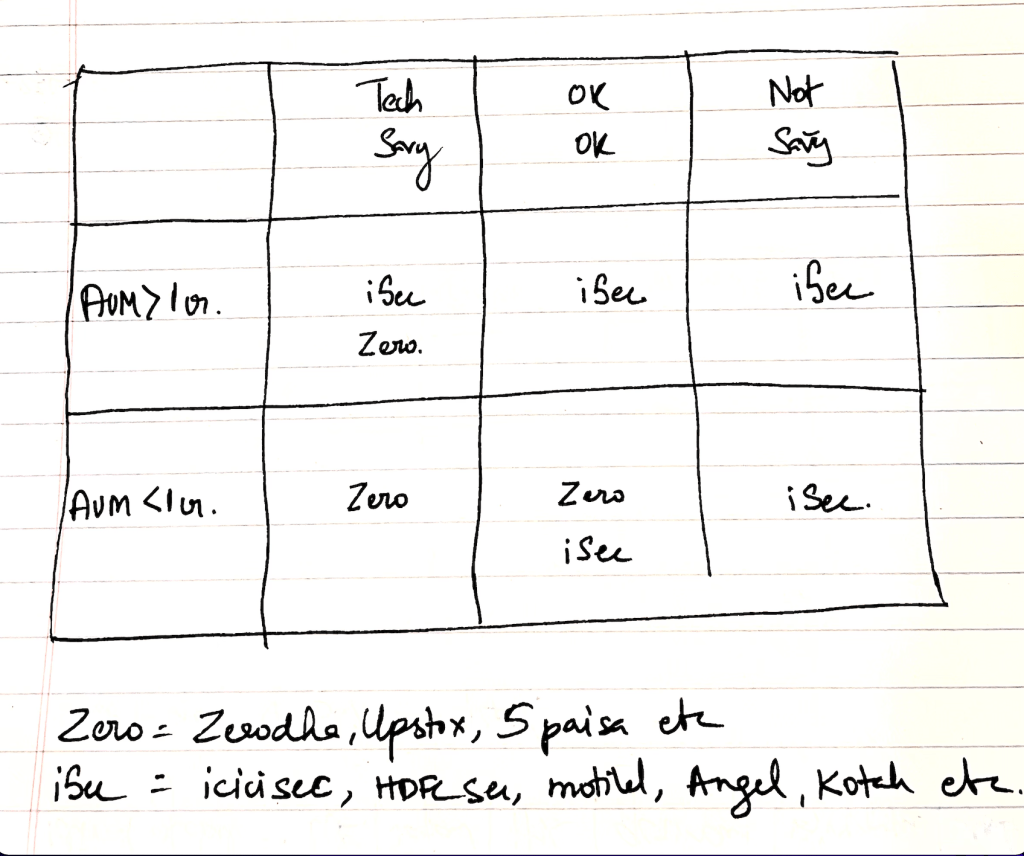 Tech Savy
OK OK
Not Savy
AUM > 1 cr.
iSec
Zero.
iSec
iSec
AUM < 1 cr.
Zero
Zero
iSec
iSec.
Zero = Zerodha, Upstox, 5 paisa etc
iSec = icici sec, HDFC sec, motilal, Angel, Kotak etc.